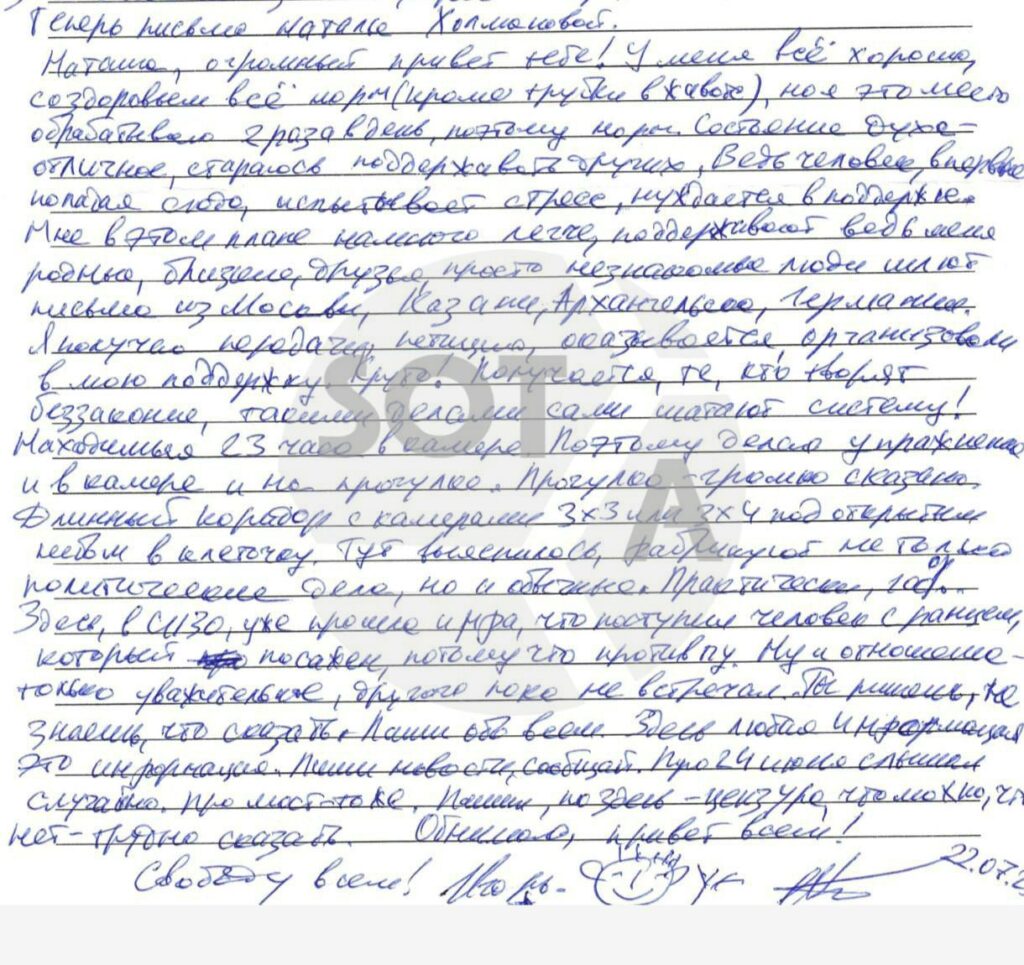 Теперь письмо Наталье Холмановой.
Наташа, огромный привет тебе! У меня всё хорошо,
со здоровьем всё норм (кроме трубки в животе), но я это место
обрабатываю 2 раза в день, поэтому норм. Состояние духа -
отличное, стараюсь поддерживать других, Ведь человек, впервые
попадая сюда, испытывает стресс, нуждается в поддержке.
Мне в этом плане намного легче, поддерживают ведь меня
родные, близкие, друзья, просто незнакомые люди шлют
письма из Москвы, Казани, Архангельска, Германии.
Я получаю передачи, петицию, оказывается, организовали
в мою поддержку. Круто! Получается, те, кто творят
беззаконие, такими делами сами шатают систему!
Находимся 23 часа в камере. Поэтому делаю упражнения
и в камере и на прогулке. Прогулка - громко сказано.
Длинный коридор с камерами 3х3 или 3х4 под открытым
небом в клеточку. Тут выяснилось, фабрикуют не только
политические дела, но и обычные. Практически,
Здесь, в СИЗО, уже прошла инфа, что поступил человек с ранцем,
который посажен, потому что против пу. Ну и отношение -
только уважительное, другого пока не встречал. Ты пишешь, не
знаешь, что сказать. Пиши обо всём. Здесь любая информация
это информация. Пиши новости, сообщай. Про 24 июня слышал
случайно. Про мост - тоже. Пиши, но здесь - цензура, что можно, что
нет - трудно сказать. Обнимаю, привет всем!
Свободу всем! Игорь - 22.07.2
SOTA